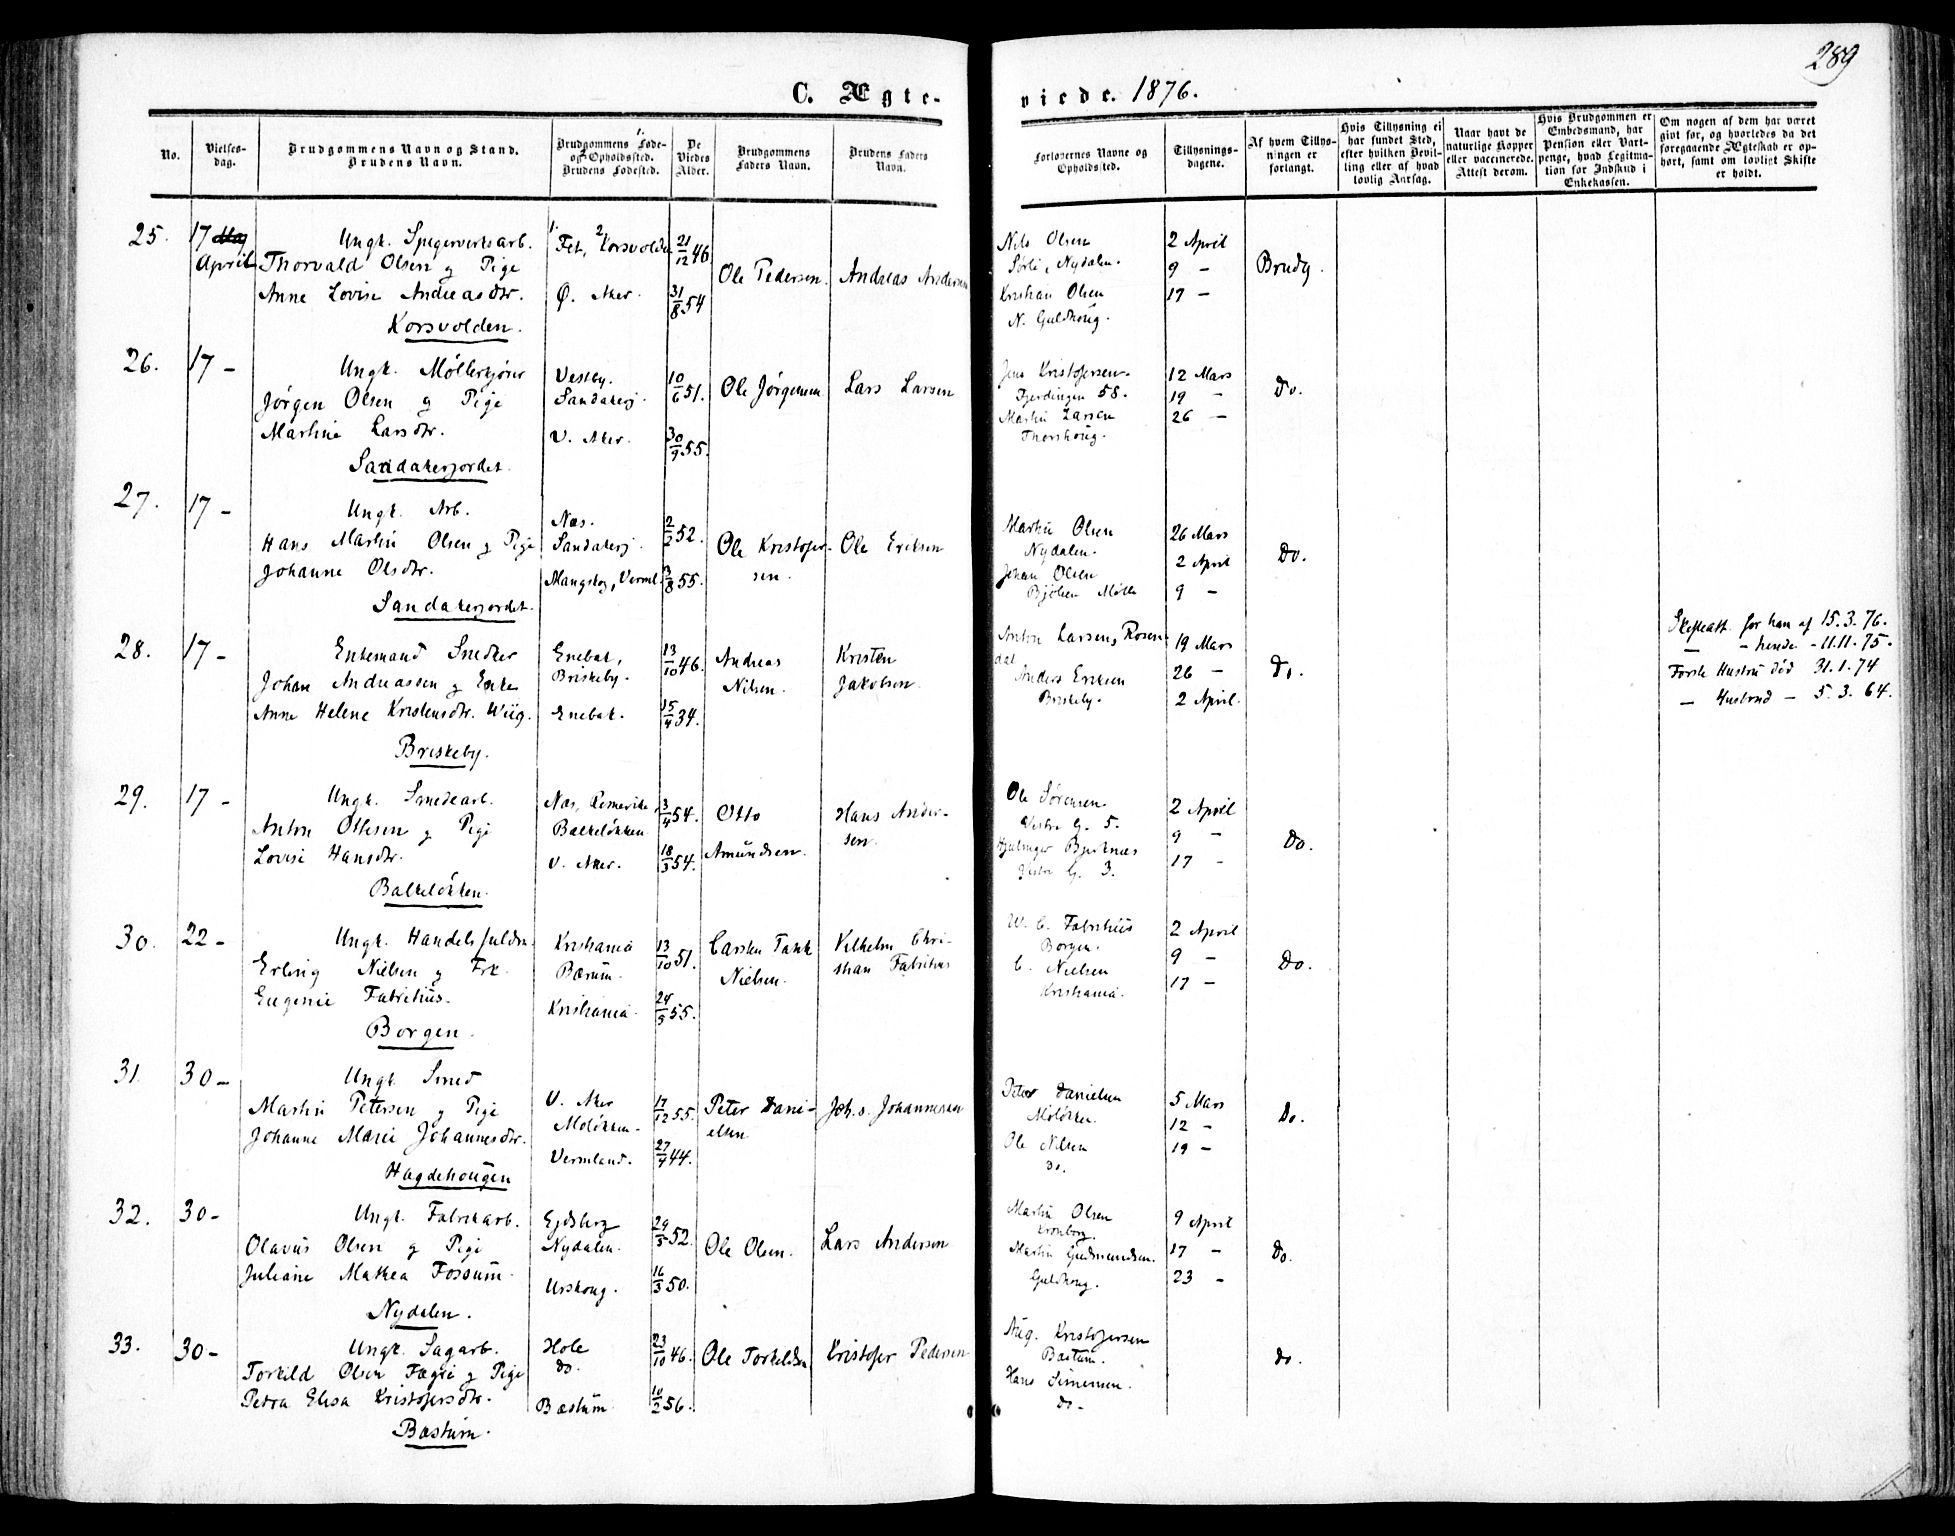 289
C. Ægte-
viede. 1876.
No.
Vielses-
dag.
Brudgommens Navn og Stand.
Brudens Navn.
Brudgommens 1. Føde-
og 2 Opholdssted.
Brudens Fødested.
De
Viedes
Alder.
Brudgommens
Faders Navn.
Brudens Faders
Navn.
Forlovernes Navne og
Opholdssted.
Tillysnings-
dagene.
Af hvem Tillys-
ningen er
forlangt.
Hvis Tillysning ei
har fundet Sted,
efter hvilken Bevil-
ling eller af hvad
lovlig Aarsag.
Naar havt de
naturlige Kopper
eller vaccinerede.
Attest derom.
Hvis Brudgommen er
Embedsmand, har
Pension eller Vart-
penge, hvad Legitima-
tion for Indskud i
Enkekassen.
Om nogen af dem har været
givt før, og hvorledes da det
foregaaende Ægteskab er op-
hørt, samt om lovligt Skifte
er holdt.
25. 17 May
April
Ungk. Spigerverksarb.
Thorvald Olsen og Pige
Anne Lovise Andreasdtr.
Korsvolden.
1. Fet, 2 Korsvolden
Ø. Aker.
21/12 46.
31/8 54
Ole Pedersen.
Andreas Andersen
Nils Olsen
Sørli, Nydalen.
Kristian Olsen
N. Guldhoug.
2 April
9 -
17 -
Brudg.
26. 17 -
Ungk. Møllerkjører
Jørgen Olsen og Pige
Martine Larsdtr.
Sandakerjordet.
Vestby.
Sandakerj.
V. Aker.
10/6 51.
30/9 55.
Ole Jørgensen
Lars Larsen
Jens Kristofersen.
Fjerdingen 58.
Martin Larsen
Thorshoug.
12 Mars
19 -
26 -
Do.
27. 17 -
Ungk. Arb.
Hans Martin Olsen og Pige
Johanne Olsdtr.
Sandakerjordet.
Næs.
Sandakerj.
Mangskog, Verml.
2/2 52.
3/8 55.
Ole Kristofer-
sen.
Ole Eriksen
Martin Olsen
Nydalen.
Johan Olsen
Bjølsen Mølle
26 Mars
2 April
9 -
Do.
28. 17 -
Enkemand Snedker
Johan Andreassen og Enke
Anne Helene Kristensdtr. Wiig.
Briskeby.
Enebak,
Briskeby.
Enebak.
13/10 46.
15/4 34.
Andreas
Nilsen.
Kristen
Jakobsen.
Anton Larsen, Rosen-
dal
Anders Eriksen
Briskeby.
19 Mars
26 -
2 April.
Do.
Skifteatt. for han af 15.3.76.
- - hende - 11.11.75.
Første Hustru død 31.1.74
- Husbond - 5.3.64.
29. 17 -
Ungk. Smedearb.
Anton Ottesen og Pige
Lovise Hansdtr.
Balkeløkken.
Næs, Romerike,
Balkeløkken
V. Aker.
3/4 54.
18/3 54.
Otto
Amundsen.
Hans Ander-
sen.
Ole Sørensen.
Vestre G. 5.
Hjalmar Bjerknæs
Vestre G. 3.
2 April
9 -
17 -
Do.
30. 22 -
Ungk. Handelsfuldm.
Erling Nielsen og Frk.
Eugenie Fabritius.
Borgen.
Kristiania
Bærum.
Kristiania.
13/10 51.
24/5 55.
Carsten Tank
Nielsen.
Vilhelm Chri-
stian Fabritius
W. C. Fabritius
Borgen.
C. Nielsen
Kristiania.
2 April
9 -
17 -
Do.
31 30 -
Ungk. Smed
Martin Petersen og Pige
Johanne Marie Johannesdtr.
Hagdehougen
V. Aker
Moløkken
Vermland.
17/12 55.
27/9 44.
Peter Dani-
elsen
Johs. Johannessen
Peter Danielsen
Moløkken
Ole Nilsen
Do.
5 Mars
12 -
19 -
Do.
32. 30 -
Ungk. Fabrikarb.
Olavus Olsen og Pige
Juliane Mathea Fossum.
Nydalen.
Ejdsberg
Nydalen.
Urskoug.
29/5 52.
16/3 50.
Ole Olsen.
Lars Andersen
Martin Olsen
Kronborg.
Martin Gudmundsen.
Guldhoug.
9 April
17 -
23 -
Do.
33. 30 -
Ungk. Sagarb.
Torkild Olsen Fægri og Pige
Petra Elisa Kristofersdtr.
Bæstum.
Hole
Do.
Bæstum
23/10 46.
10/2 56.
Ole Torkildsen
Kristofer Pedersen
Aug. Kristofersen
Bæstum.
Hans Simensen.
Do -
Do.